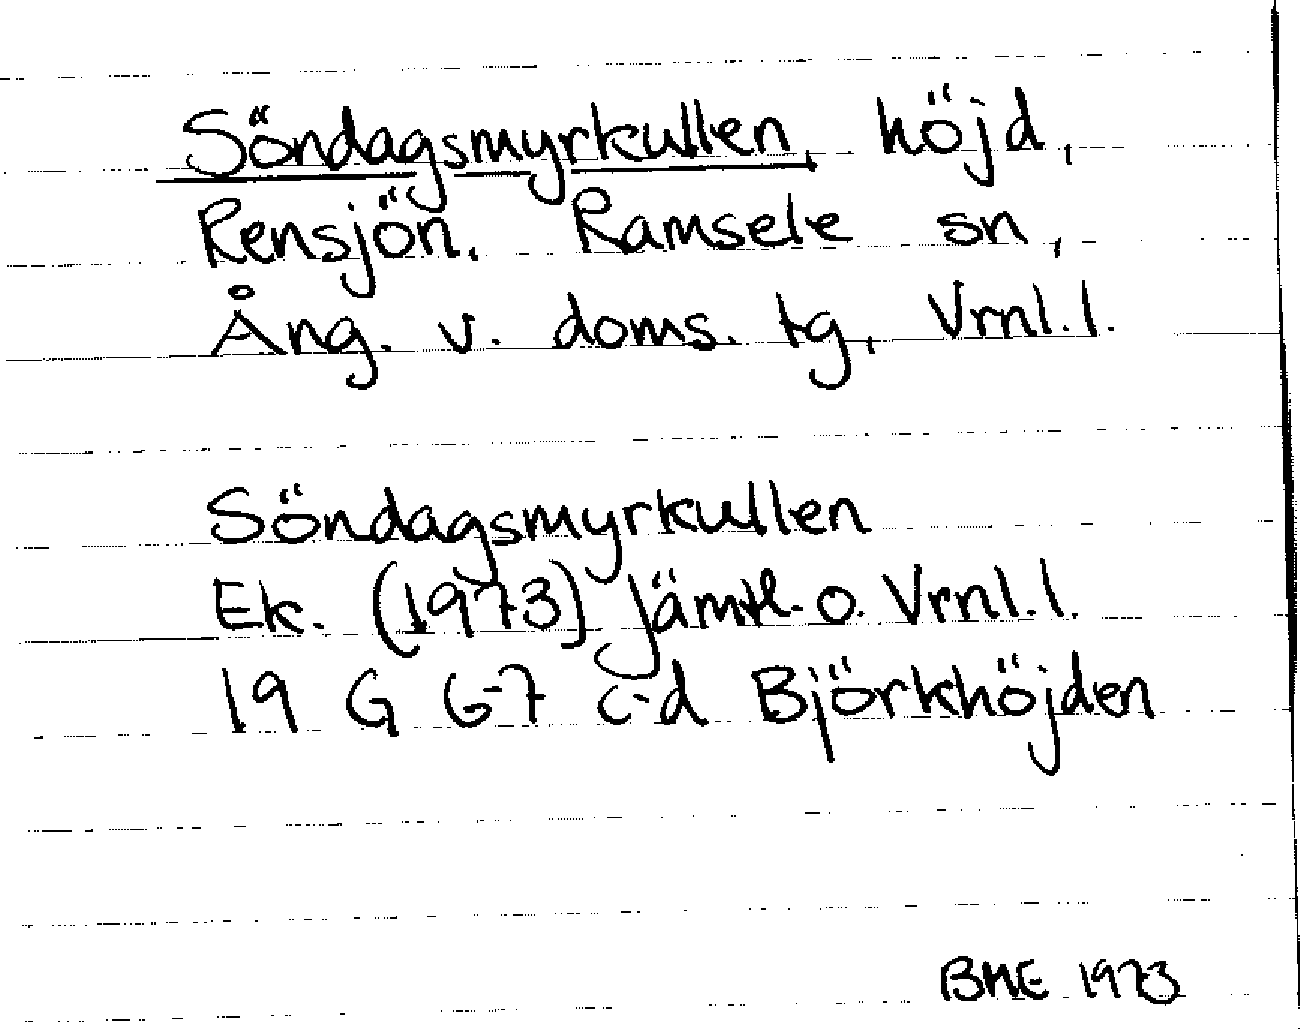 Söndagsmyrkullen, höjd,
Rensjön. Ramsele sn,
Ång. v. doms. tg, Vrnl. l.
Söndagsmyrkullen
Ek. (1973) Jämtl. o. Vrnl. l.
19 G 6-7 c-d Björkhöjden
BME 1973